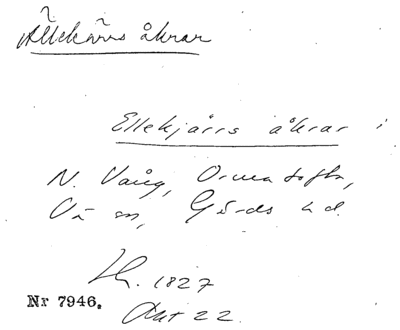 Ällekärrs åkrar
Ellekjärrs åkrar i
N. Vång, Ormatofta,
Vä sn, Gärds hd.
Lh. 1827
Nr 7946.
Akt 22